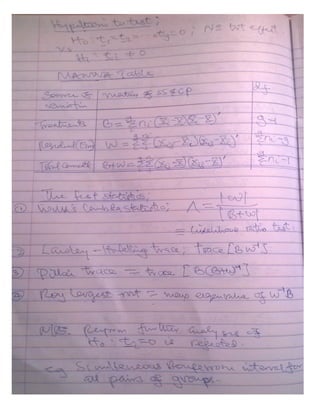 Hypothesis to test;
H₀: t₁ = t₂ = ... tg = 0; 
Vs
H₁: ti ≠ 0
MANOVA Table
Source of variation | matrix of SS & CP | d.f
Treatments | B = Σ ni (x̄i - x̄)(x̄i - x̄)' | g-1
Residual (Error) | W = ΣΣ (xij - x̄i)(xij - x̄i)' | Σ ni - g
Total | B+W = ΣΣ (xij - x̄)(xij - x̄)' | Σ ni - 1
The test statistics;
① Wilk's Lambda statistic; Λ = |W| / |B+W|
= Likelihood ratio test.
② Lawley - Hotelling trace; Trace [BW⁻¹]
③ trace = trace [B(B+W)⁻¹]
④ Roy largest root = max eigenvalue of W⁻¹B
N/B: Perform further analyses if
H₀: ti = 0 is rejected.
eg Simultaneous Bonferroni interval for
all pairs of groups.